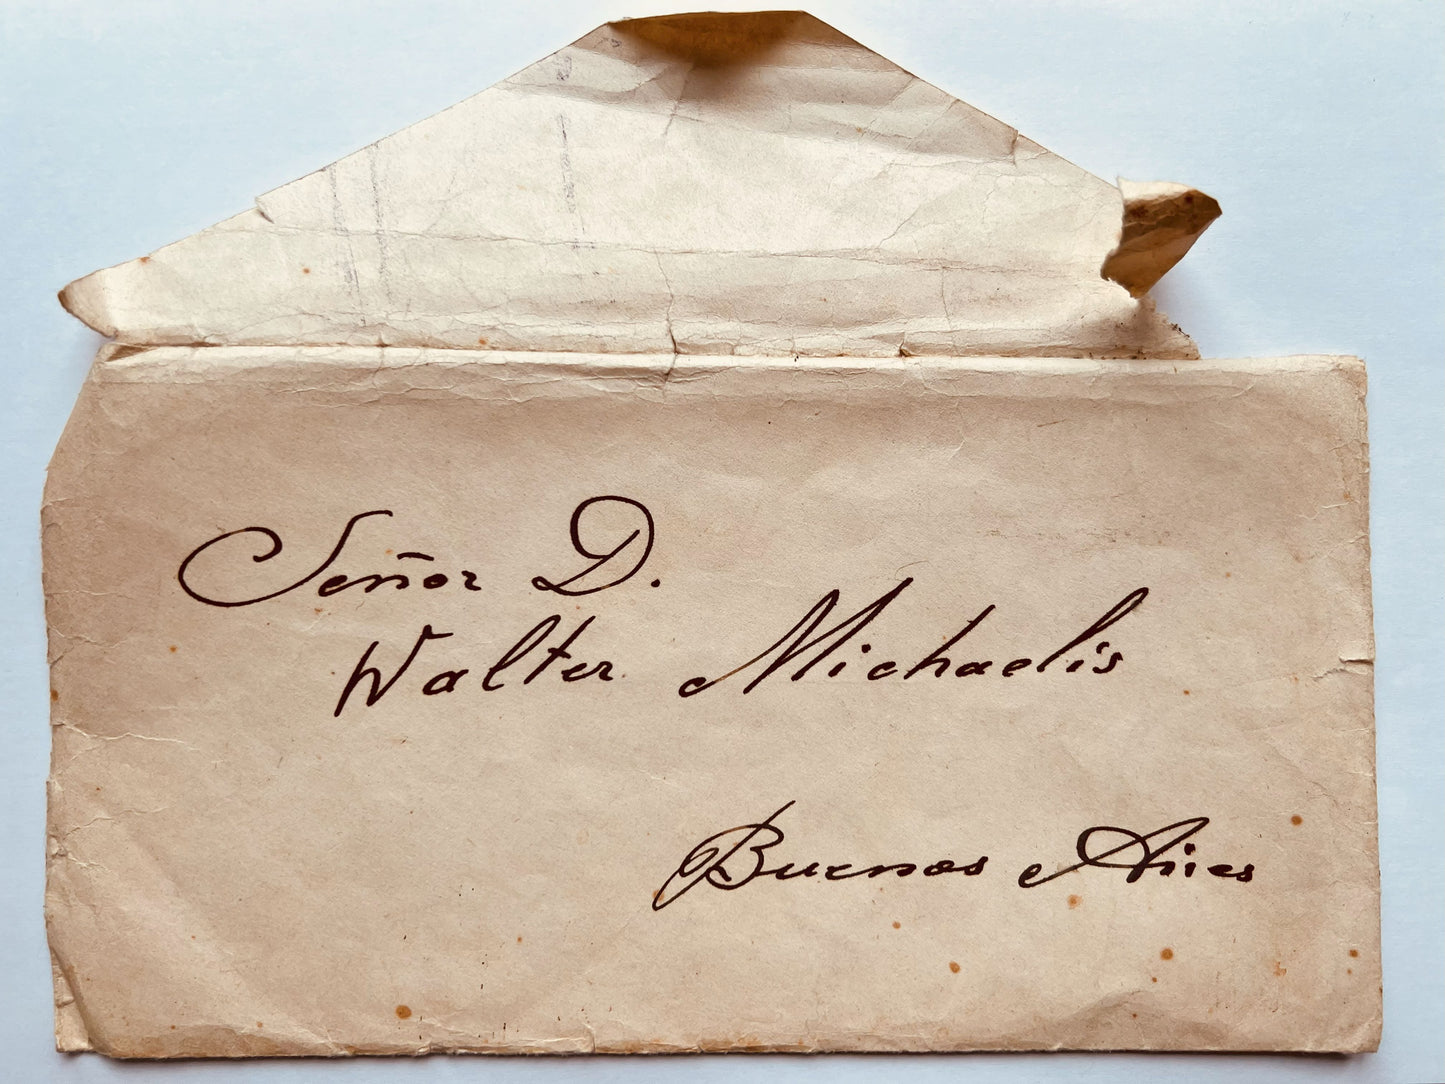 Señor D.
Walter Michaelis
Buenos Aires